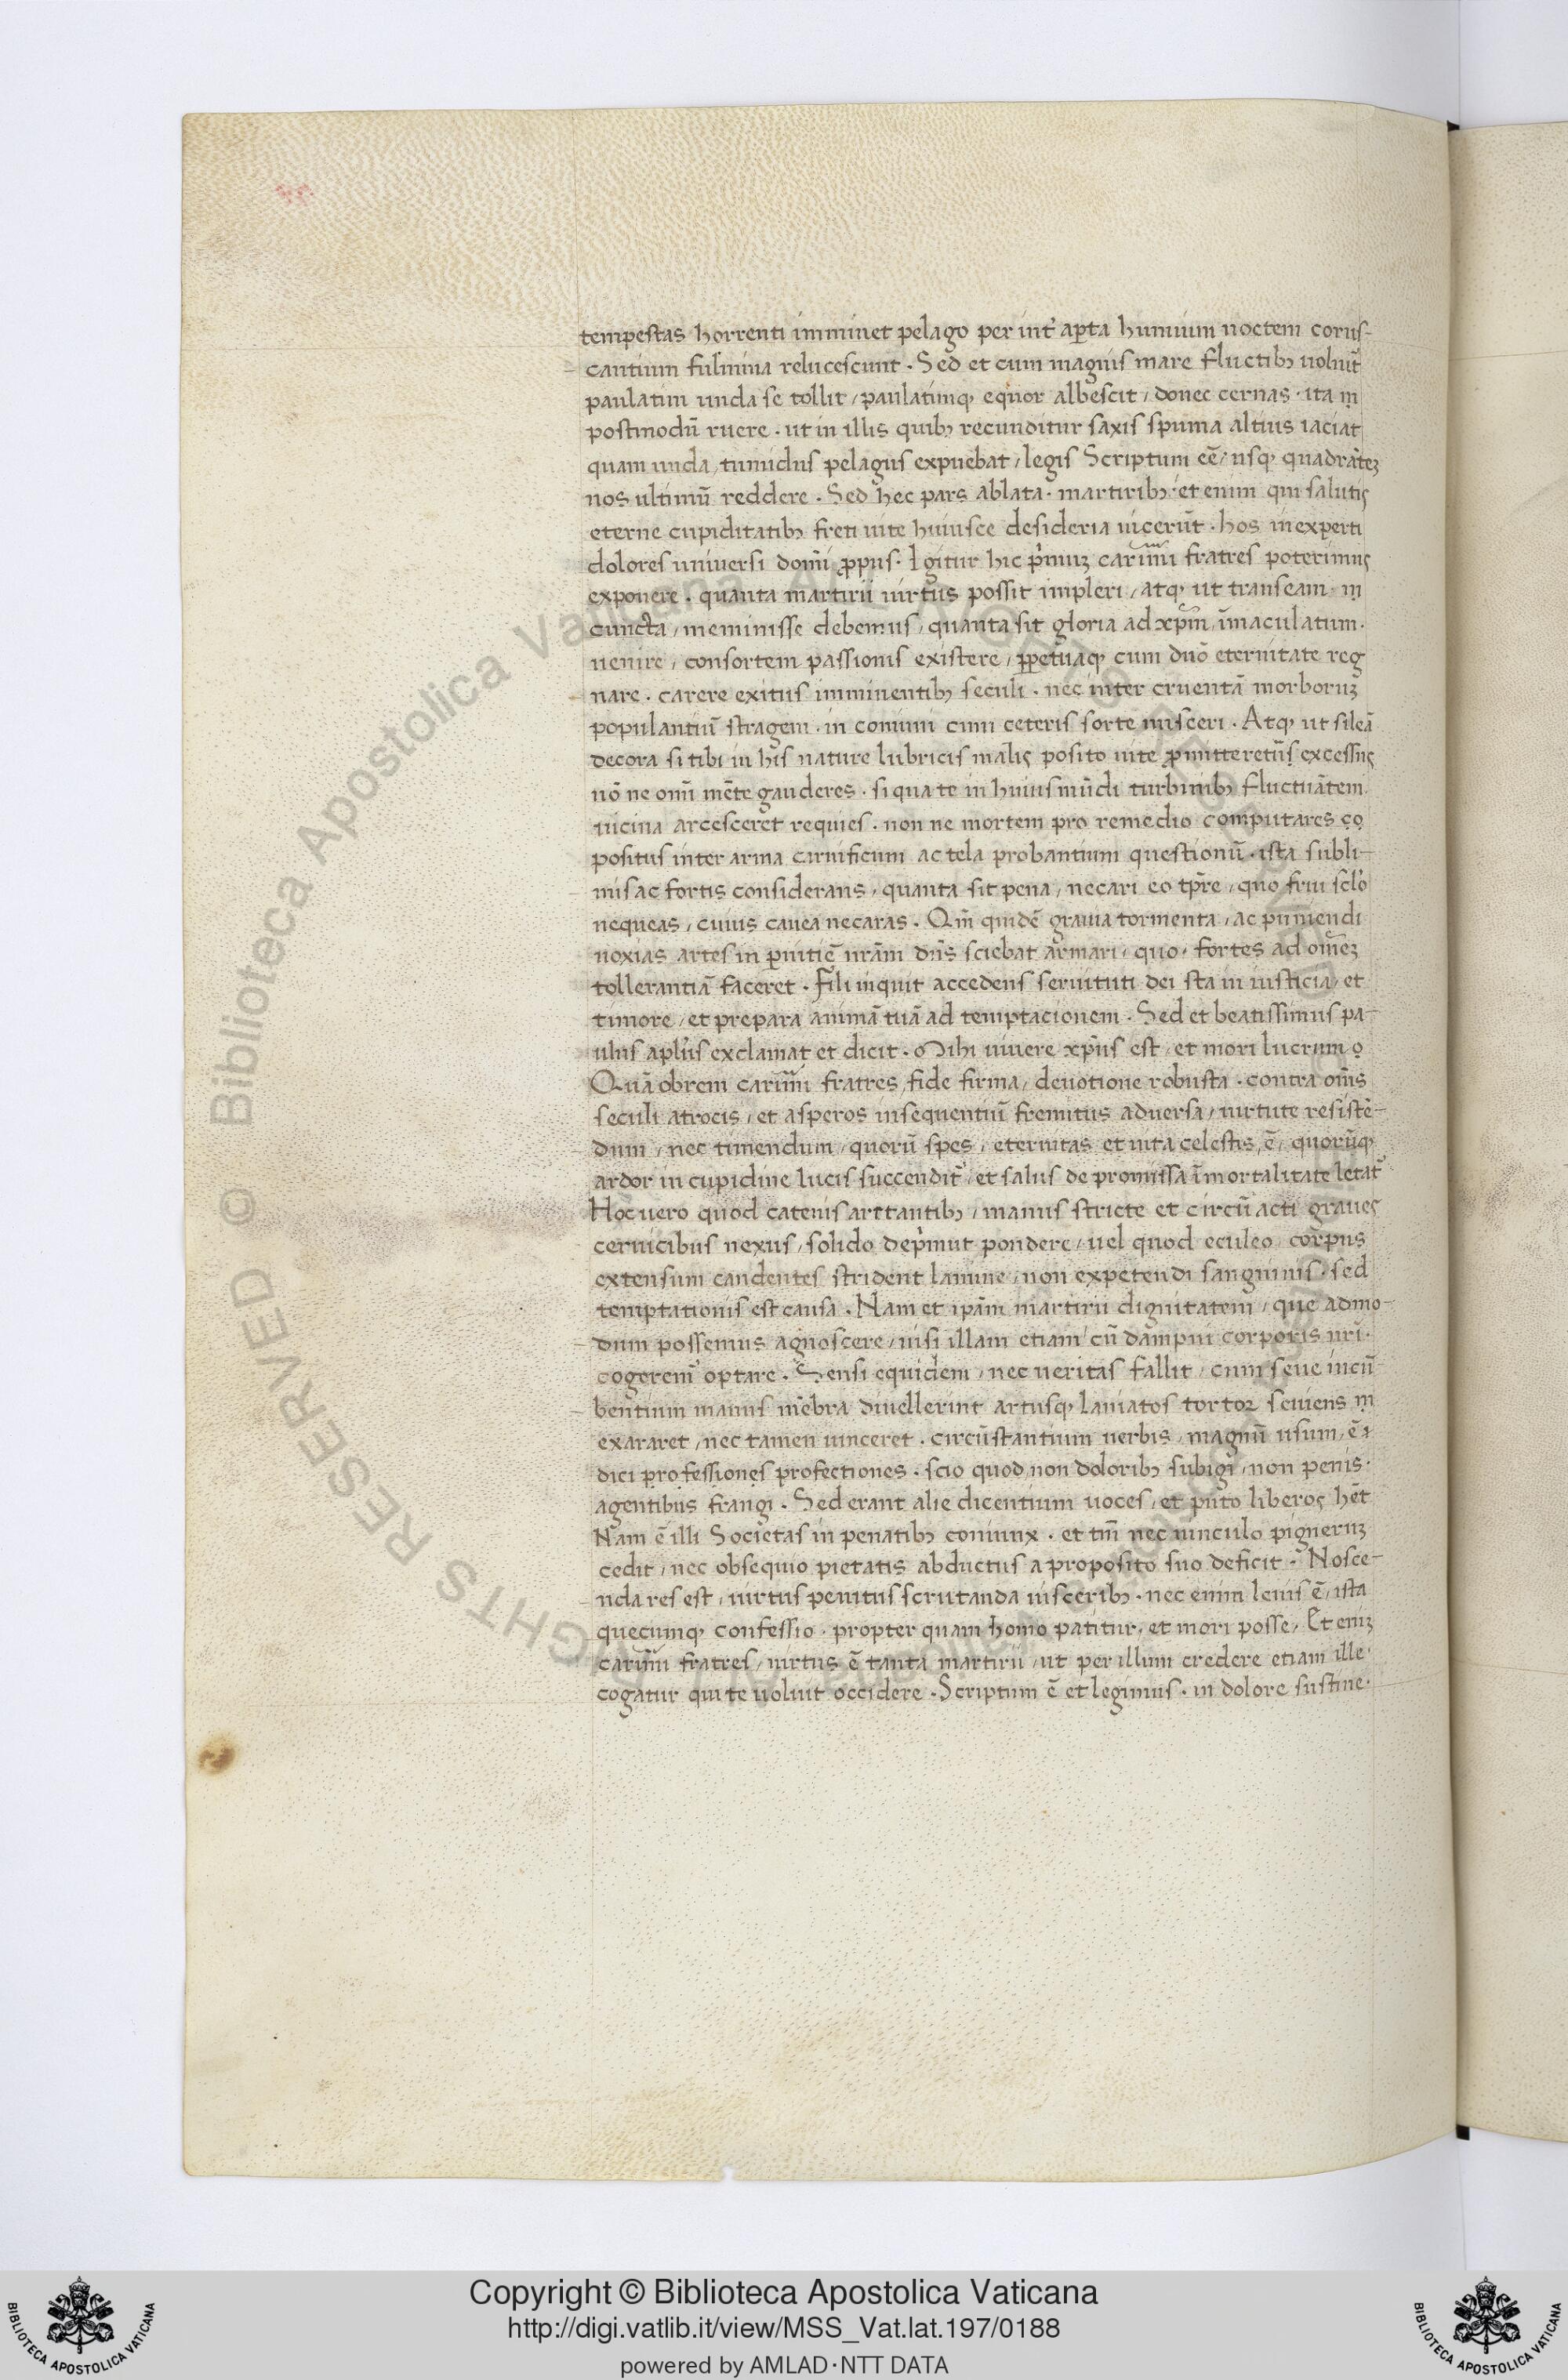 tempestas horrenti imminet pelago per int̾ aꝑta humium noctem corus-
cantium fulmina relucescunt . Sed et cum magnis mare fluctibꝫ uoluit̾
paulatim unda se tollit / paulatimqꝫ equor albescit / donec cernas · ita in
postmodū ruere . ut in illis quibꝫ recunditur saxis spuma altius iaciat
quam unda / tumidus pelagus expuebat / legis Scriptum eē / usqꝫ quadrātez
nos ultimū reddere . Sed hec pars ablata · martiribꝫ · et enim qui salutis
eterne cupiditatibꝫ freti uite huiusce desideria uicerūt . hos inexperti
dolores uniuersi domī ꝓpus . Igitur hic pͥmuꝫ carim̄i fratres poterimus
exponere . quanta martirii uirtus possit impleri / atqꝫ ut transeam · in
cuncta / meminisse debemus / quanta sit gloria ad xp̄m / īmaculatum .
uenire / consortem passionis existere / ꝑpetuaqꝫ cum dn̄o eternitate reg
nare . carere exitus imminentibꝫ seculi . nec inter cruentā morboruꝫ
populantiū stragem · in comuni cum ceteris sorte misceri . Atqꝫ ut sileā
decora si tibi in his nature lubricis malis posito uite ꝓmitteret᷑ is excessus
nō ne omī mēte gauderes . si qua te in huius mūdi turbinibꝫ fluctuātem
uicina arcesceret requies . non ne mortem pro remedio computares cō
positus inter arma carnificum ac tela probantium questionū · ista subli-
mis ac fortis considerans / quanta sit pena / necari eo tp̄re / quo frui sc̄lo
nequeas / cuius cauea necaras . Qm̄ quidē grauia tormenta / ac puniendi
noxias artes in ꝑnitiē nr̄am dn̄s sciebat armari / quo · fortes ad om̄ez
tollerantiā faceret . Fili inquit accedens seruituti dei sta in iusticia / et
timore / et prepara animā tuā ad temptacionem . Sed et beatissimus pa-
ulus apl̄us exclamat et dicit . Mihi uiuere xp̄us est / et mori lucrum
Quā obrem carim̄i fratres / fide firma / deuotione robusta . contra om̄is
seculi atrocis / et asperos insequentiū fremitus aduersa / uirtute resistē-
dum / nec timendum / quorū spes / eternitas et uita celestis ē / quorūqꝫ
ardor in cupidine lucis succendit᷑ / et salus de promissa īmortalitate letat᷑
Hoc uero quod catenis artantibꝫ / manus stricte et circū acti graues
ceruicibus nexus / solido depͥmut pondere / uel quod eculeo corpus
extensum candentes strident lamine / non expetendi sanguinis · sed
temptationis est causa . Nam et ip̄am martirii dignitatem / que admo-
dum possemus agnoscere / nisi illam etiam cū dampni corporis nr̄i .
cogerem᷑ optare . Sensi equidem / nec ueritas fallit / cum seue incū-
bentium manus mēbra diuellerint artusqꝫ laniatos tortoꝛ seuiens in
exararet / nec tamen uinceret . circūstantium uerbis / magnū usum / ē i
dici professiones profectiones . scio quod non doloribꝫ subigi / non penis ·
agentibus frangi . Sed erant alie dicentium uoces / et puto liberos hēt
Nam ē illi Societas in penatibꝫ coniunx . et tm̄ nec uinculo pigneruꝫ
cedit / nec obsequio pietatis abductus a proposito suo deficit . Nosce-
nda res est / uirtus penitus scrutanda uisceribꝫ . nec enim leuis ē / ista
quecumqꝫ confessio · propter quam homo patitur / et mori posse / Et eniꝫ
carim̄i fratres / uirtus ē tanta martirii / ut per illum credere etiam ille ·
cogatur qui te uoluit occidere . Scriptum ē et legimus . in dolore sustine ·
Biblioteca Apostolica Vaticana
RIGHTS RESERVED ©
Copyright © Biblioteca Apostolica Vaticana
http://digi.vatlib.it/view/MSS_Vat.lat.197/0188
powered by AMLAD·NTT DATA
BIBLIOTECA APOSTOLICA VATICANA
BIBLIOTECA APOSTOLICA VATICANA